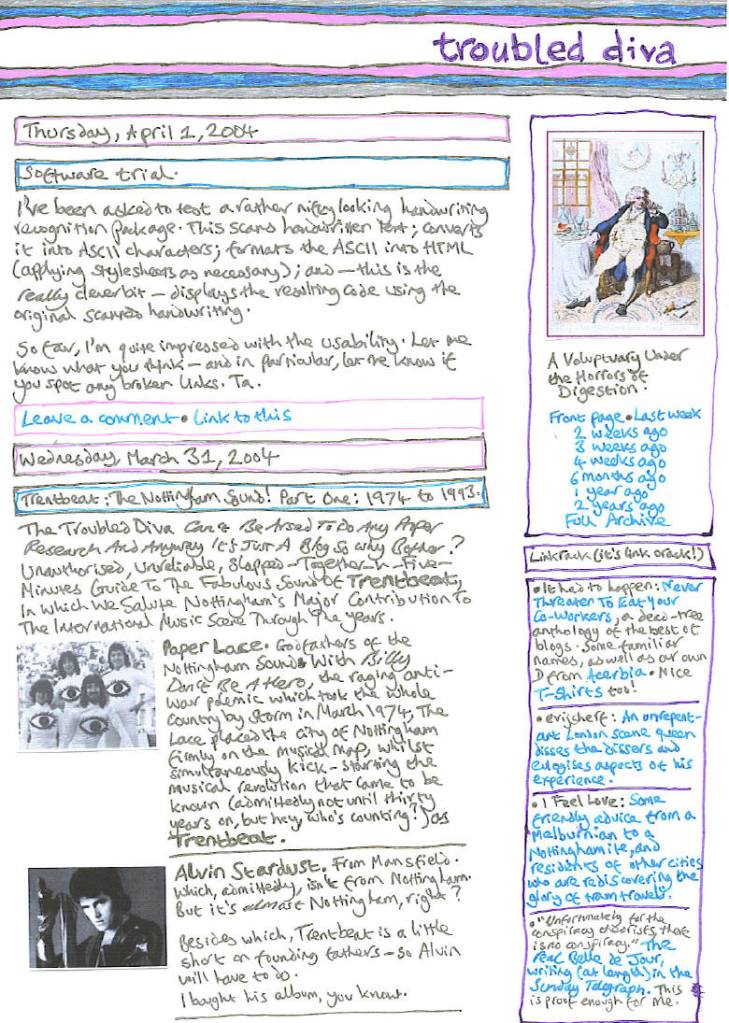 troubled diva
Thursday, April 1, 2004
Software trial.
I've been asked to test a rather nifty looking handwriting
recognition package. This scans handwritten text; converts
it into ASCII characters; formats the ASCII into HTML
(applying stylesheets as necessary); and – this is the
really clever bit – displays the resulting code using the
original scanned handwriting.
So far, I'm quite impressed with the usability. Let me
know what you think – and in particular, let me know if
you spot any broken links. Ta.
Leave a comment • Link to this
Wednesday, March 31, 2004
Trentbeat: The Nottingham Sound! Part One: 1974 to 1993.
The Troubled Diva Can't Be Arsed To Do Any Proper
Research And Anyway It's Just A Blog So Why Bother?
Unauthorised, Unreliable, Slapped-Together-In-Five-
Minutes Guide To The Fabulous Sound Of Trentbeat,
In Which We Salute Nottingham's Major Contribution To
The International Music Scene Through The Years.
Paper Lace. Godfathers of the
Nottingham Sound. With Billy
Don't Be A Hero, the raging anti-
war polemic which took the whole
country by storm in March 1974, The
Lace placed the city of Nottingham
firmly on the musical map, whilst
simultaneously kick-starting the
musical revolution that came to be
known (admittedly not until thirty
years on, but hey, who's counting?) as
Trentbeat.
Alvin Stardust. From Mansfield.
Which, admittedly, isn't from Nottingham.
But it's almost Nottingham, right?
Besides which, Trentbeat is a little
short on founding fathers – so Alvin
will have to do.
I bought his album, you know.
A Voluptuary Under
the Horrors of
Digestion.
Front page • Last week
2 weeks ago
3 weeks ago
4 weeks ago
6 months ago
1 year ago
2 years ago
Full Archive
Linkrack (it's link crack!)
• It had to happen: Never
Threaten To Eat Your
Co-Workers, a dead-tree
anthology of the best of
blogs. Some familiar
names, as well as our own
D from Acerbia. Nice
T-Shirts too!
• evilchert: An unrepent-
ant London scene queen
disses the dissers and
eulogises aspects of his
experience.
• I Feel Love: Some
friendly advice from a
Melburnian to a
Nottinghamite, and
residents of other cities
who are rediscovering the
glory of tram travel.
• "Unfortunately for the
conspiracy theorists, there
is no conspiracy." The
real Belle de Jour,
writing (at length) in the
Sunday Telegraph. This
is proof enough for me.